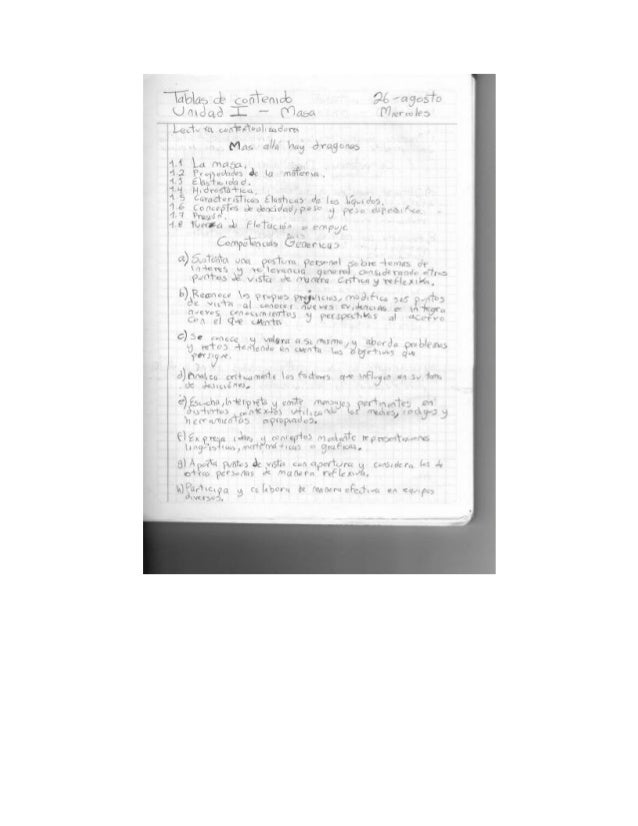 Tablas de contenido 26-agosto
Unidad I - Masa Miercoles
Lectura contextualizadora
Mas allá hay dragones
1.1 La masa.
1.2 Propiedades de la materia.
1.3 Elasticidad.
1.4 Hidrostatica.
1.5 Caracteristicas Elasticas de los liquidos.
1.6 Conceptos de dencidad, peso y peso
1.7 Presión.
1.8 Fuerza de Flotación o empuje
Competencias Genericas
a) Sustenta una postura personal sobre temas de
interes y relevancia general considerando otros
puntos de vista de manera critica y reflexiva.
b) Reconoce los propios prejuicios, modifica sus puntos
de vista al conocer nuevas evidencias e integra
nuevos conocimientos y perspectivas al acervo
con el que cuenta
c) Se conoce y valora a si mismo, y aborda problemas
y retos teniendo en cuenta los objetivos que
persigue.
d) Analiza criticamente los factores que influyen en su toma
de desiciónes.
e) Escucha, Interpreta y emite mensajes pertinentes en
distintos contextos utilizando los medios, codigos y
herramientas apropiados.
f) Expresa ideas y conceptos mediante representaciones
linguisticas, matemáticas o graficas.
g) Aporta puntos de vista con apertura y considera los de
otras personas de manera reflexiva.
h) Participa y colabora de manera efectiva en equipos
diversos.